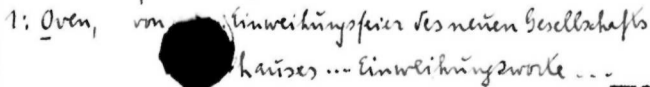 1: Oven, von Einweihungsfeier des neuen Gesellschafts
hauses ... Einweihungsworte ...